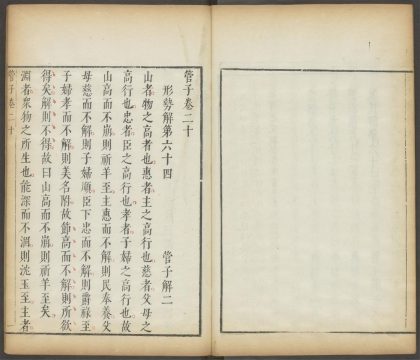 管子卷二十
形勢解第六十四
管子解二
山者物之高者也惠者主之高行也慈者父母之
高行也忠者臣之高行也孝者子婦之高行也故
山高而不崩則祈羊至主惠而不解則民奉養父
母慈而不解則子婦順臣下忠而不解則爵祿至
子婦孝而不解則美名附故節高而不解則所欲
得矣解則不得故曰山高而不崩則祈羊至矣
淵者衆物之所生也能深而不涸則沈玉至主者
管子卷二十
一